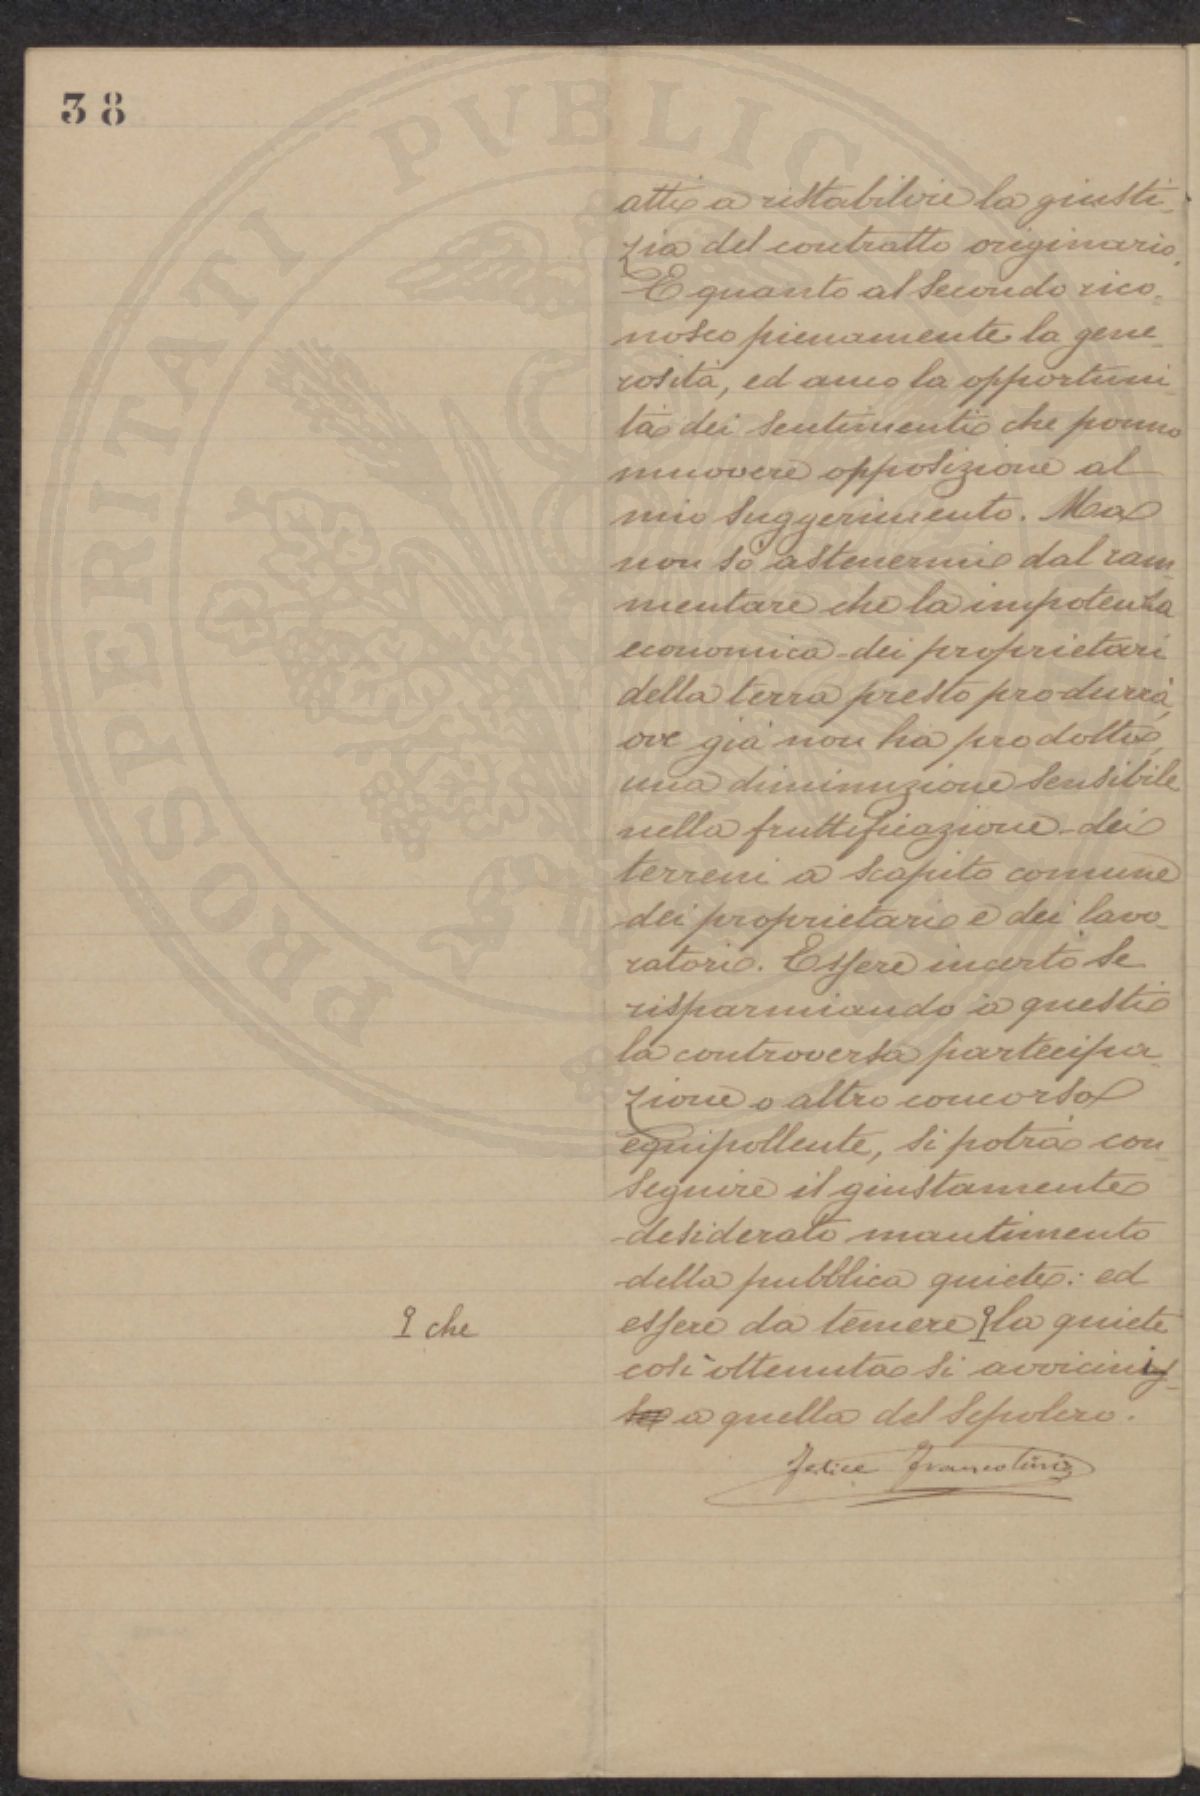 38
PROSPERITATI PVBLICAE
atti a ristabilire la giusti-
zia del contratto originario.
E quanto al secondo rico-
nosco pienamente la gene-
rosità, ed anco la opportuni
tà dei sentimenti che ponno
muovere opposizione al
mio suggerimento. Ma
non so astenermi dal ram-
mentare che la impotenza
economica dei proprietari
della terra presto produrrà,
ove già non ha prodotto,
una diminuzione sensibile
nella fruttificazione dei
terreni a scapito comune
dei proprietari e dei lavo-
ratori. Essere incerto se
risparmiando a questi
la controversa partecipa-
zione o altro concorso
equipollente, si potrà con-
seguire il giustamente
desiderato mantimento
della pubblica quiete: ed
essere da temere la quiete
che
così ottenuta si avvicini
a quella del Sepolcro.
Felice Francolini